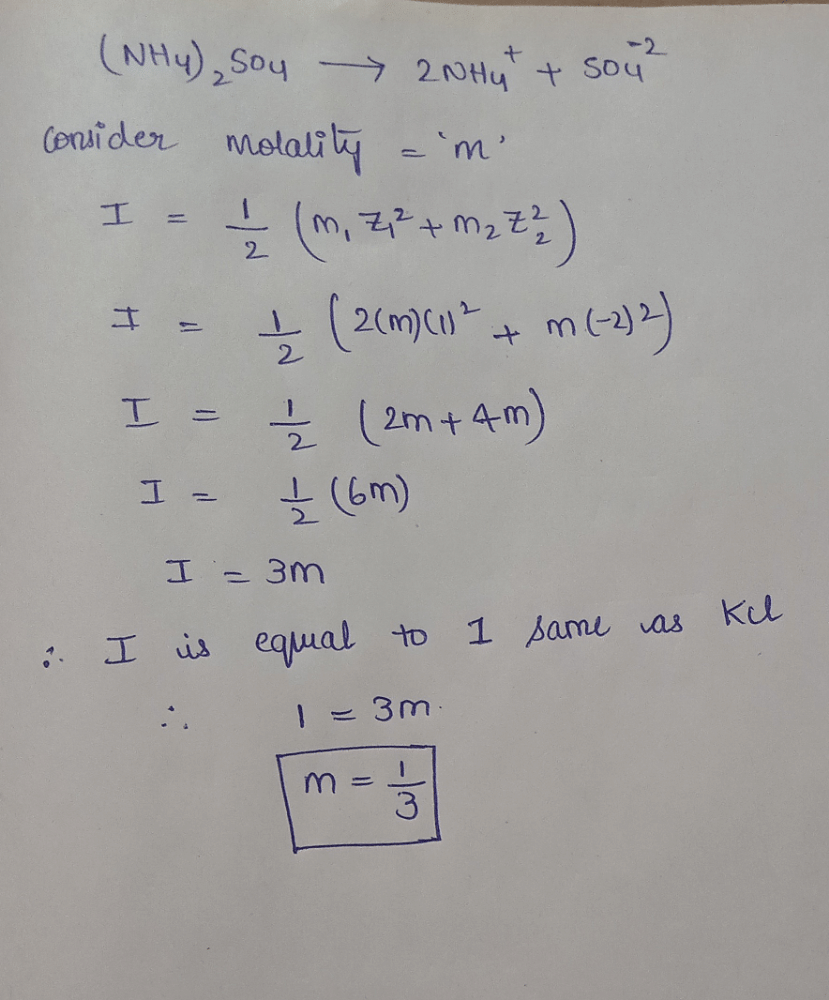 (NH4)2SO4 → 2NH4⁺ + SO4⁻²
Consider molality = 'm'
I = 1/2 (m₁ Z₁² + m₂ Z₂²)
I = 1/2 (2(m)(1)² + m(-2)²)
I = 1/2 (2m + 4m)
I = 1/2 (6m)
I = 3m
∴ I is equal to 1 same as KCl
∴ 1 = 3m.
m = 1/3